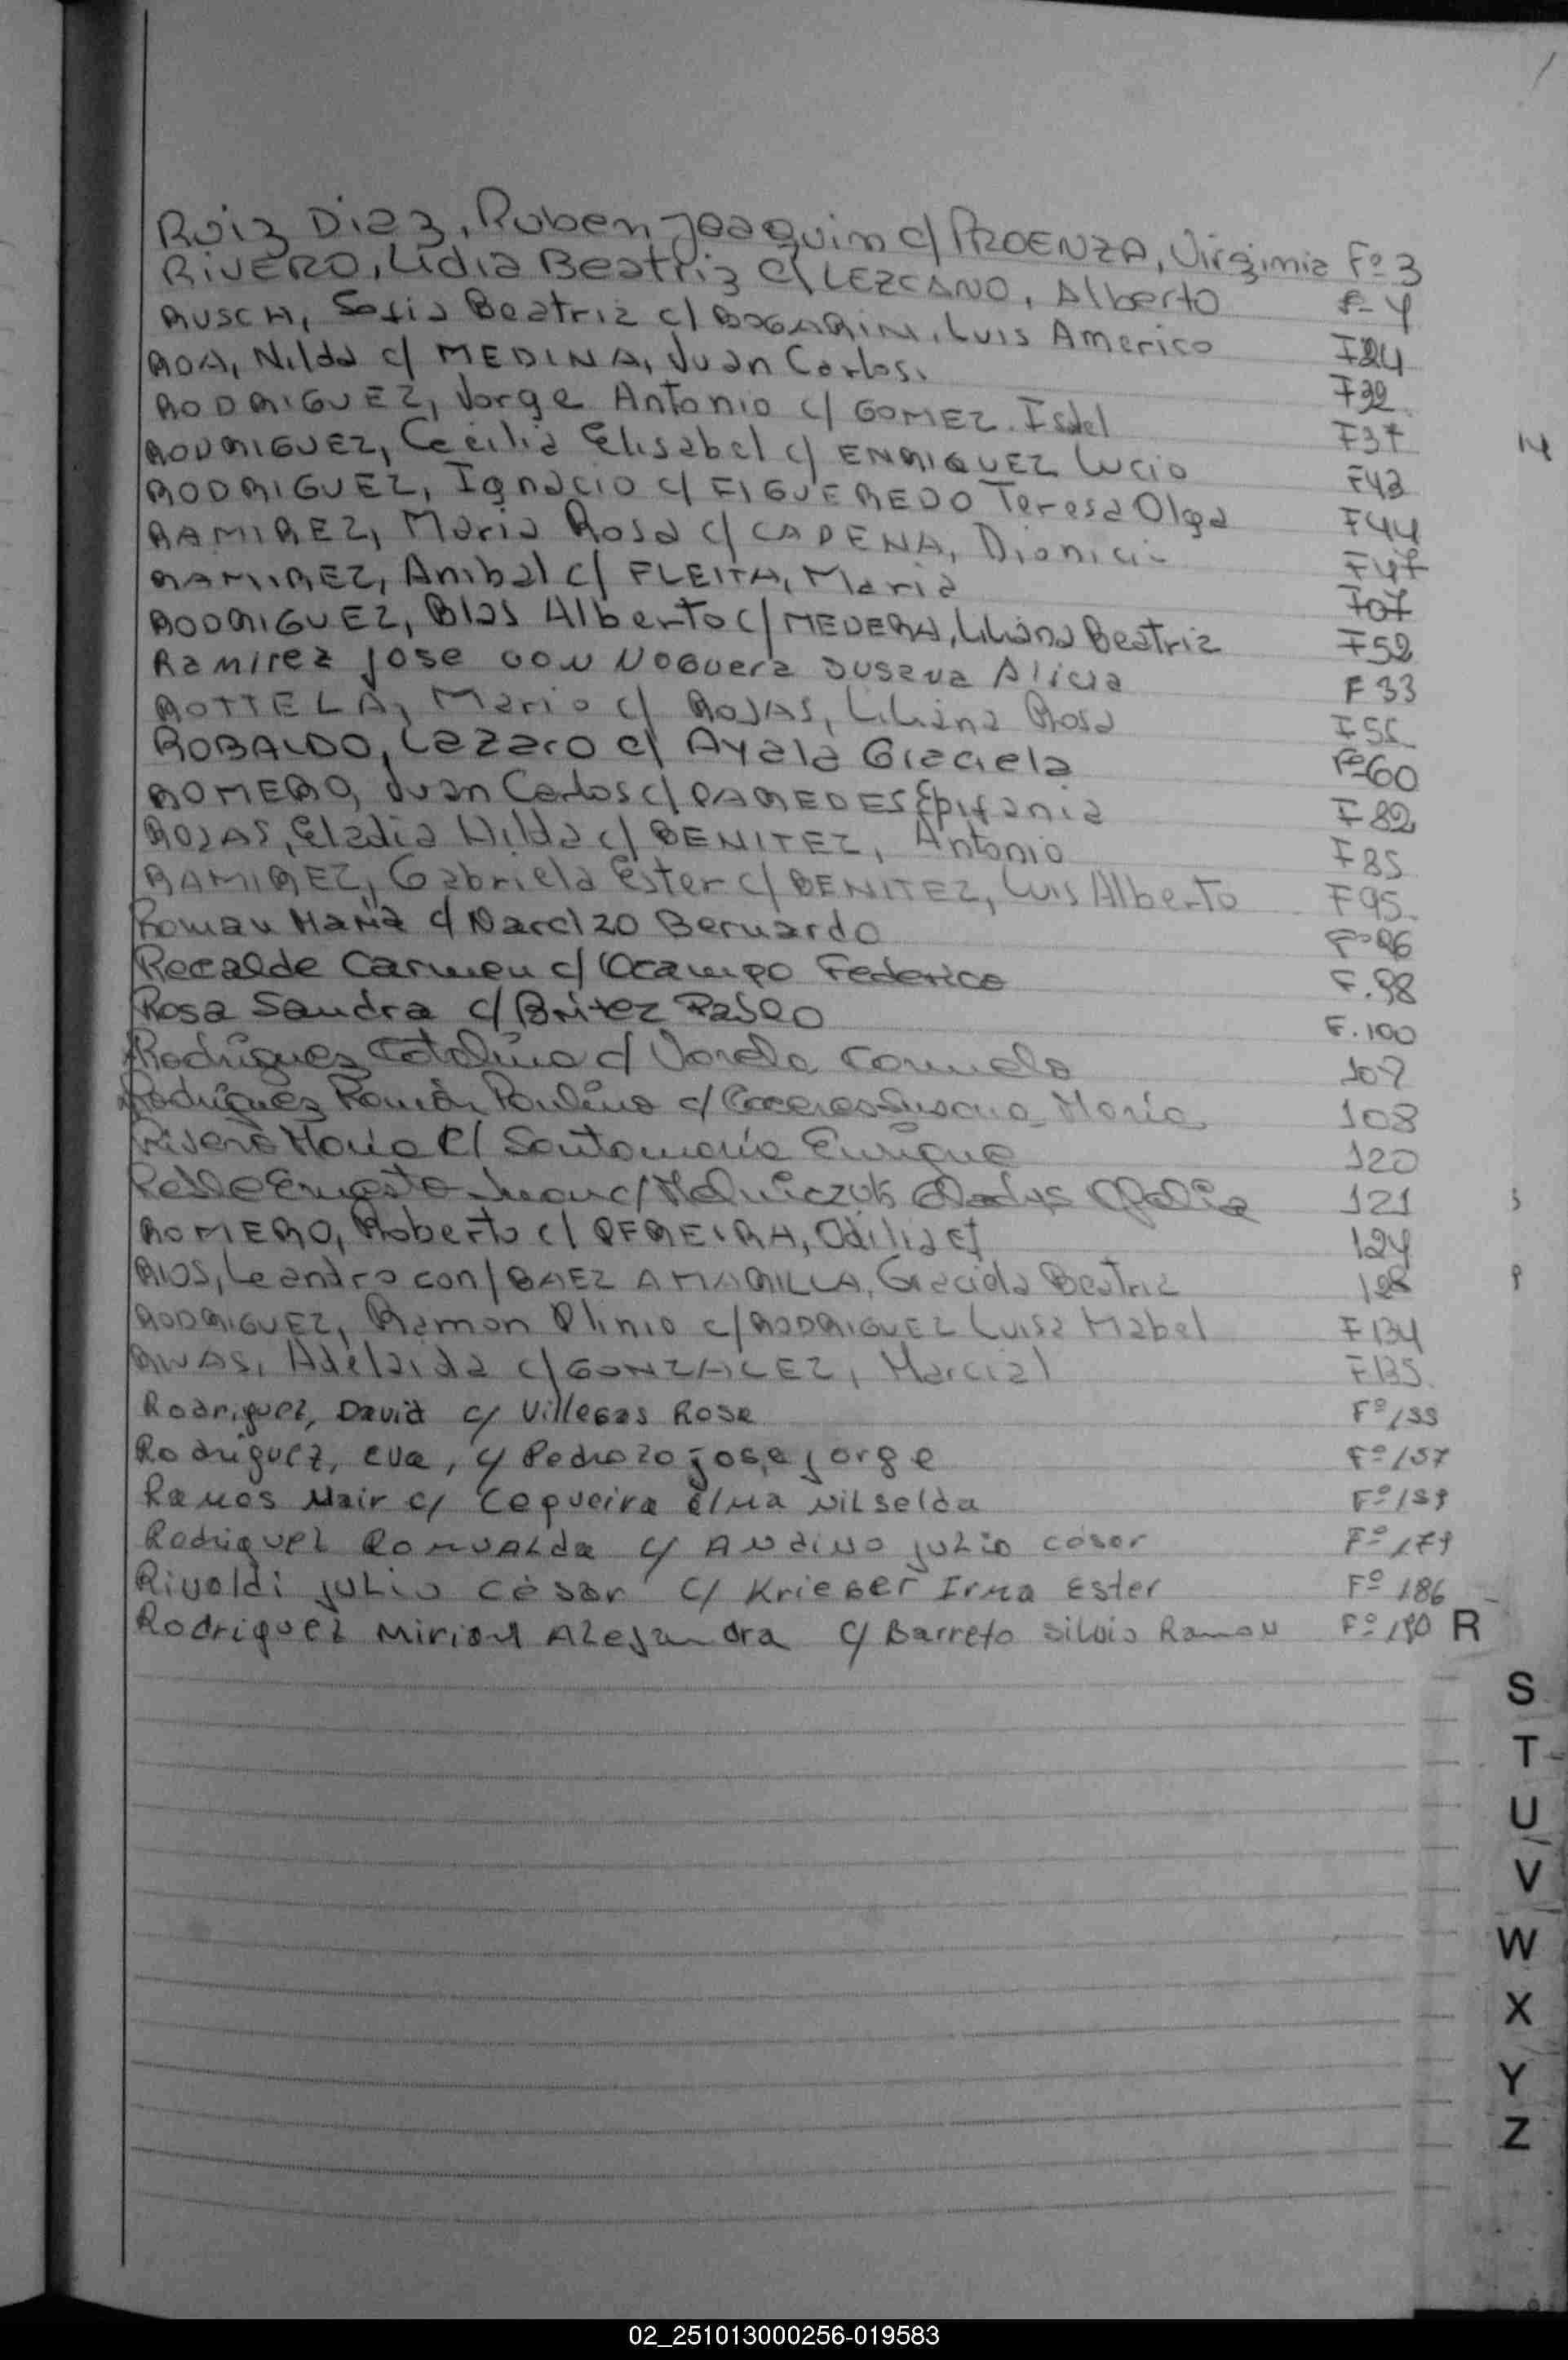 Ruiz Diaz, Ruben Joaquin c/ PROENZA, Virginia Fº 3
RIVERO, Lidia Beatriz c/ LEZCANO, Alberto Fº 4
RUSCH, Sofia Beatriz c/ BOGARIN, Luis Americo F24
ROA, Nilda c/ MEDINA, Juan Carlos. F32
RODRIGUEZ, Jorge Antonio c/ GOMEZ. Isdel F37
RODRIGUEZ, Cecilia Elisabel c/ ENRIQUEZ Lucio F43
RODRIGUEZ, Ignacio c/ FIGUEREDO Teresa Olga F44
RAMIREZ, Maria Rosa c/ CADENA, Dionici F47
RAMIREZ, Anibal c/ FLEITA, Maria
RODRIGUEZ, Blas Alberto c/ MEDERA, Liliana Beatriz F52
Ramirez Jose con Noguera Susana Alicia F 33
ROTTELA, Mario c/ ROJAS, Liliana Rosa
ROBALDO, Lazaro c/ Ayala Graciela Fº 60
ROMERO, Juan Carlos c/ PAREDES Epifania F 82
ROJAS, Eladia Hilda c/ BENITEZ, Antonio F 85
RAMIREZ, Gabriela Ester c/ BENITEZ, Luis Alberto F 95
Roman Maria c/ Narcizo Bernardo Fº 96
Recalde Carmen c/ Ocampo Federico F. 98
Rosa Sandra c/ Britez Pablo F. 100
Rodriguez Catalina c/ Varela 107
Rodriguez Ramón Paulino c/ Caceres Susana Maria 108
Rivero Maria c/ Santamaria Enrique 120
Ernesto Juan c/ 121
ROMERO, Roberto c/ PEREIRA, Odilia 124
RIOS, Leandro con/ BAEZ AMARILLA, Graciela Beatriz 128
RODRIGUEZ, Ramon Plinio c/ RODRIGUEZ Luisa Mabel F 134
Adelaida c/ GONZALEZ, Marcial F135
Rodriguez, David c/ Villegas Rosa
Rodriguez, eva, c/ Pedrozo jose jorge Fº 157
Ramos Nair c/ Cequeira elma Nilselda Fº 159
Rodriguez Romualda c/ Andino julio césar Fº 179
Rivoldi julio césar c/ Krieger Irma Ester Fº 186
Rodriguez Miriam Alejandra c/ Barreto Silvio Ramon Fº 190 R
S
T
U
V
W
X
Y
Z
02_251013000256-019583